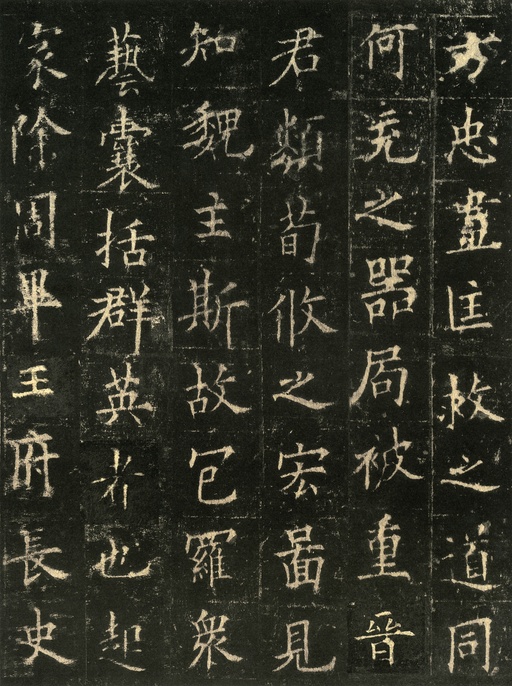 忠盡匡救之道同
何充之器局被重晉
君類荀攸之宏圖見
知魏主斯故包羅衆
藝囊括群英者也起
家除周畢王府長史